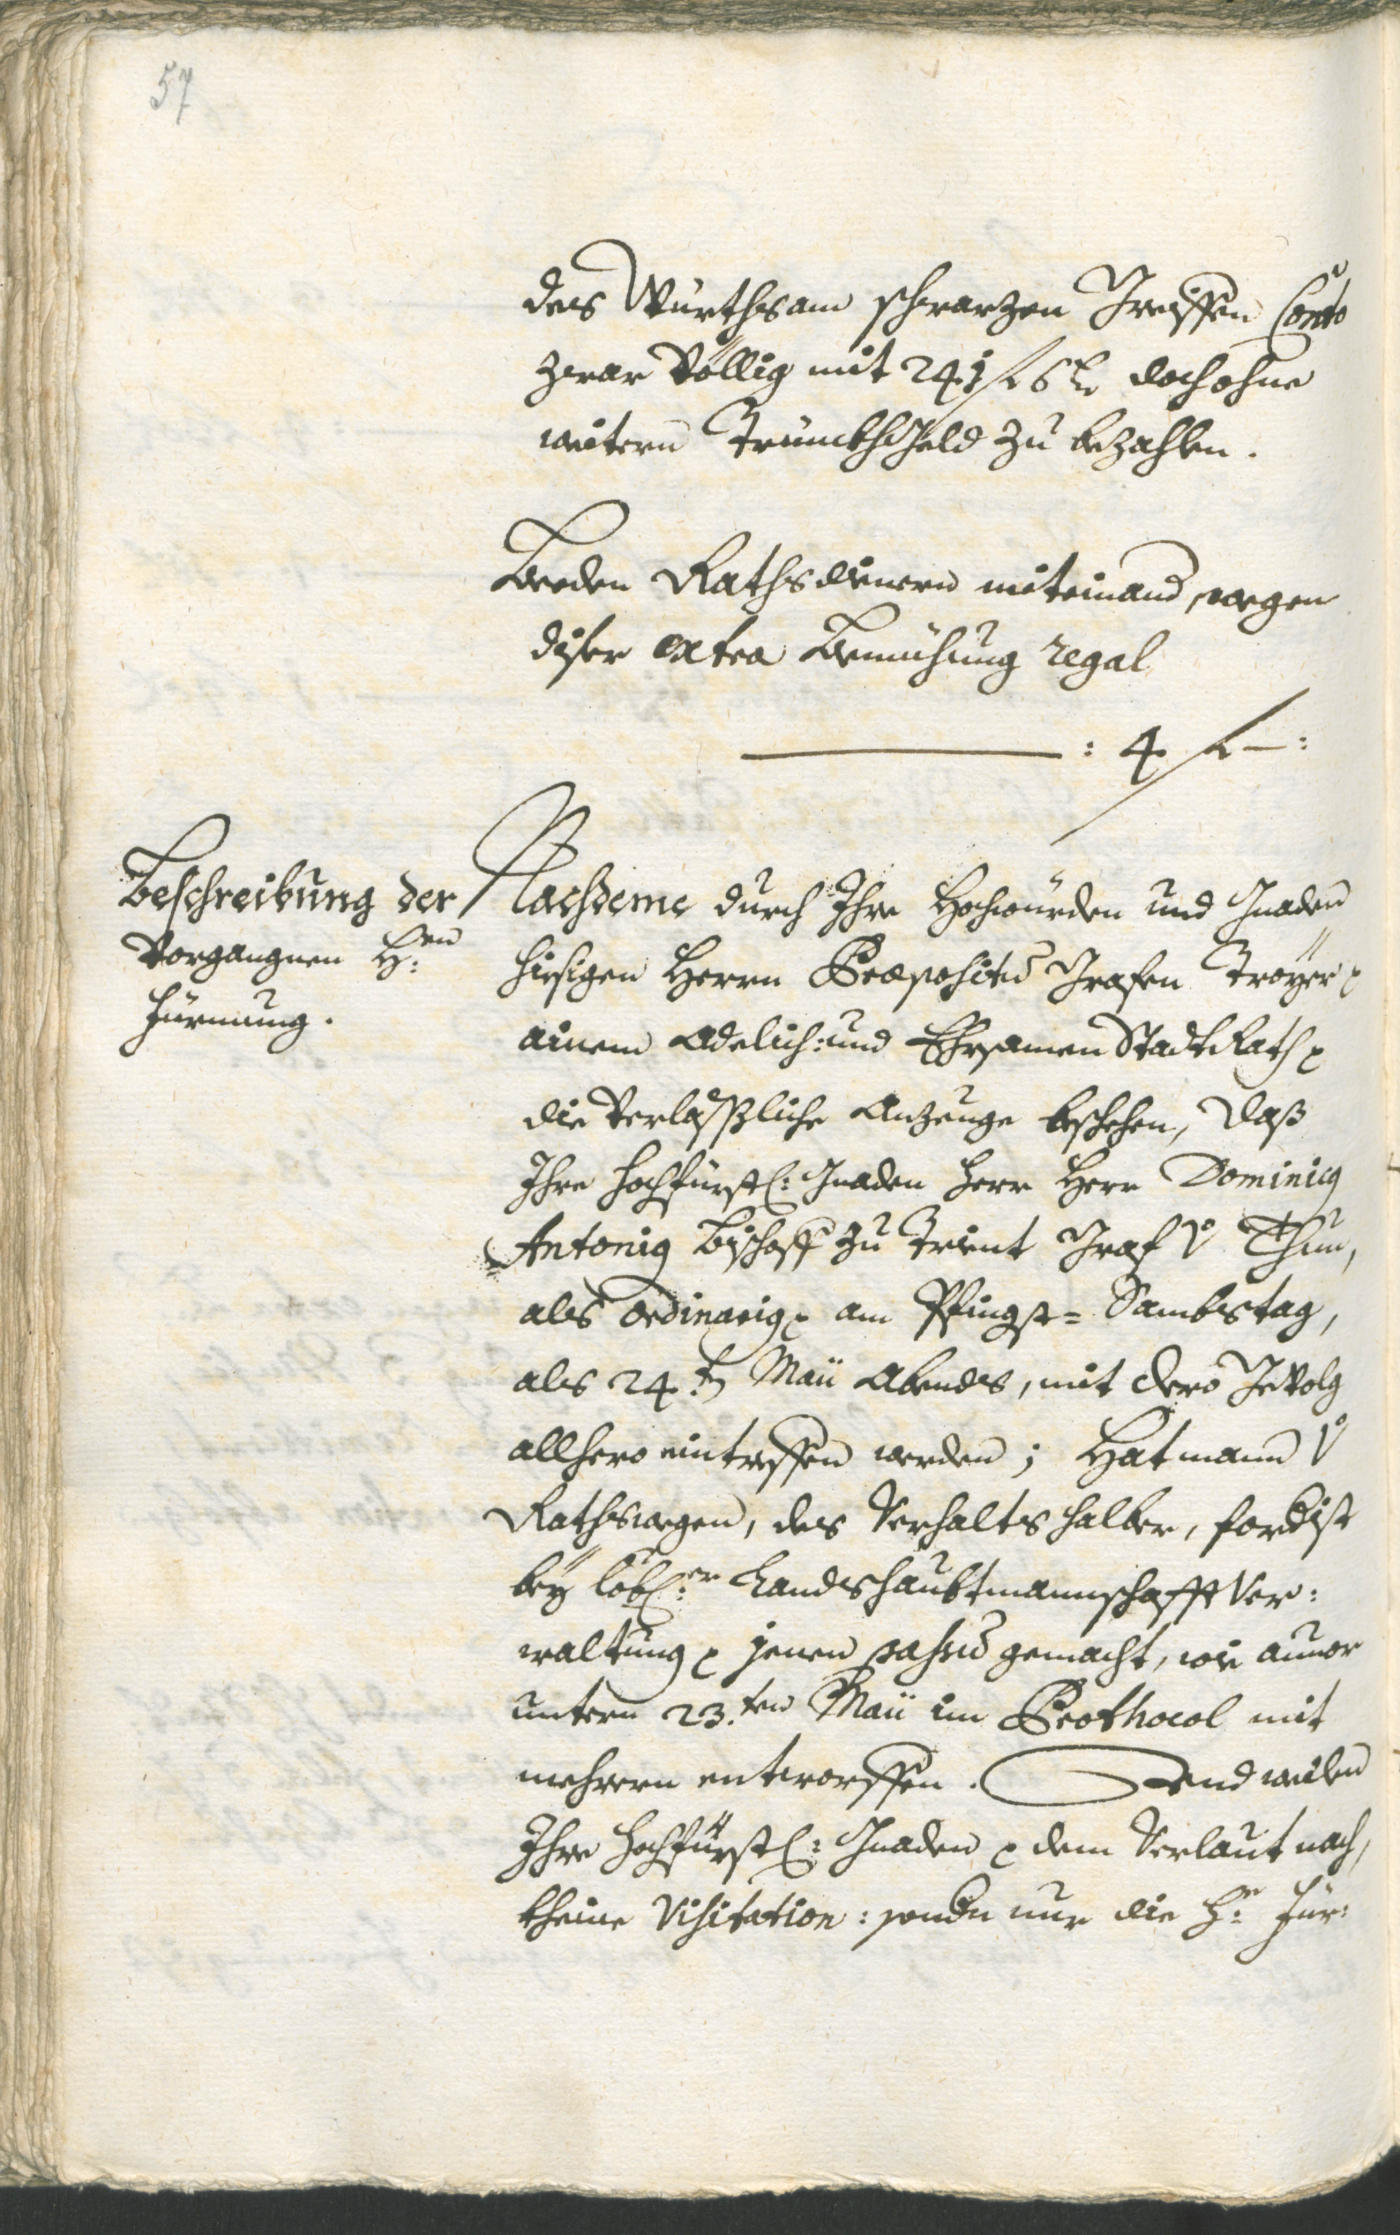 57
des Würths am schwarzen Greiffen Conto
zwar völlig mit 24 f 6 kr doch ohne
weitern Trünckhgeld zu bezahlen.
Beeden Rathsdienern miteinand, wegen
diser extra Bemühung regal
: 4 f — :
Beschreibung der
Vorgangnen H:en
Fürmung.
Nachdeme durch Ihre Hochwürden und Gnaden
hiesigen Herrn Praepositu Grafen Troÿer
ainem Adelich: und Ehrsamen Stadt Rath
die Verläßliche Anzeuge beschehen, daß
Ihre hochfürstl: Gnaden Herr Herr Dominicq
Antoniq Bischoff zu Trient Graf v Thun,
als ordinariq am Pfingst= Sambstag,
als 24.tn Maii Abends, mit dero Gevolg
allhero eintreffen werden; Hat mann v
Rathswegen, des Verhalts halber, fordist
beÿ löbl:er Landshaubtmannschafft Ver:
waltung jenen passu gemacht, wie auuor
untern 23.ten Maii im Prothocol mit
mehrern entworffen. Und weilen
Ihre Hochfürstl: Gnaden dem Verlaut nach,
kheine Visitation: sondn nur die H: Für: